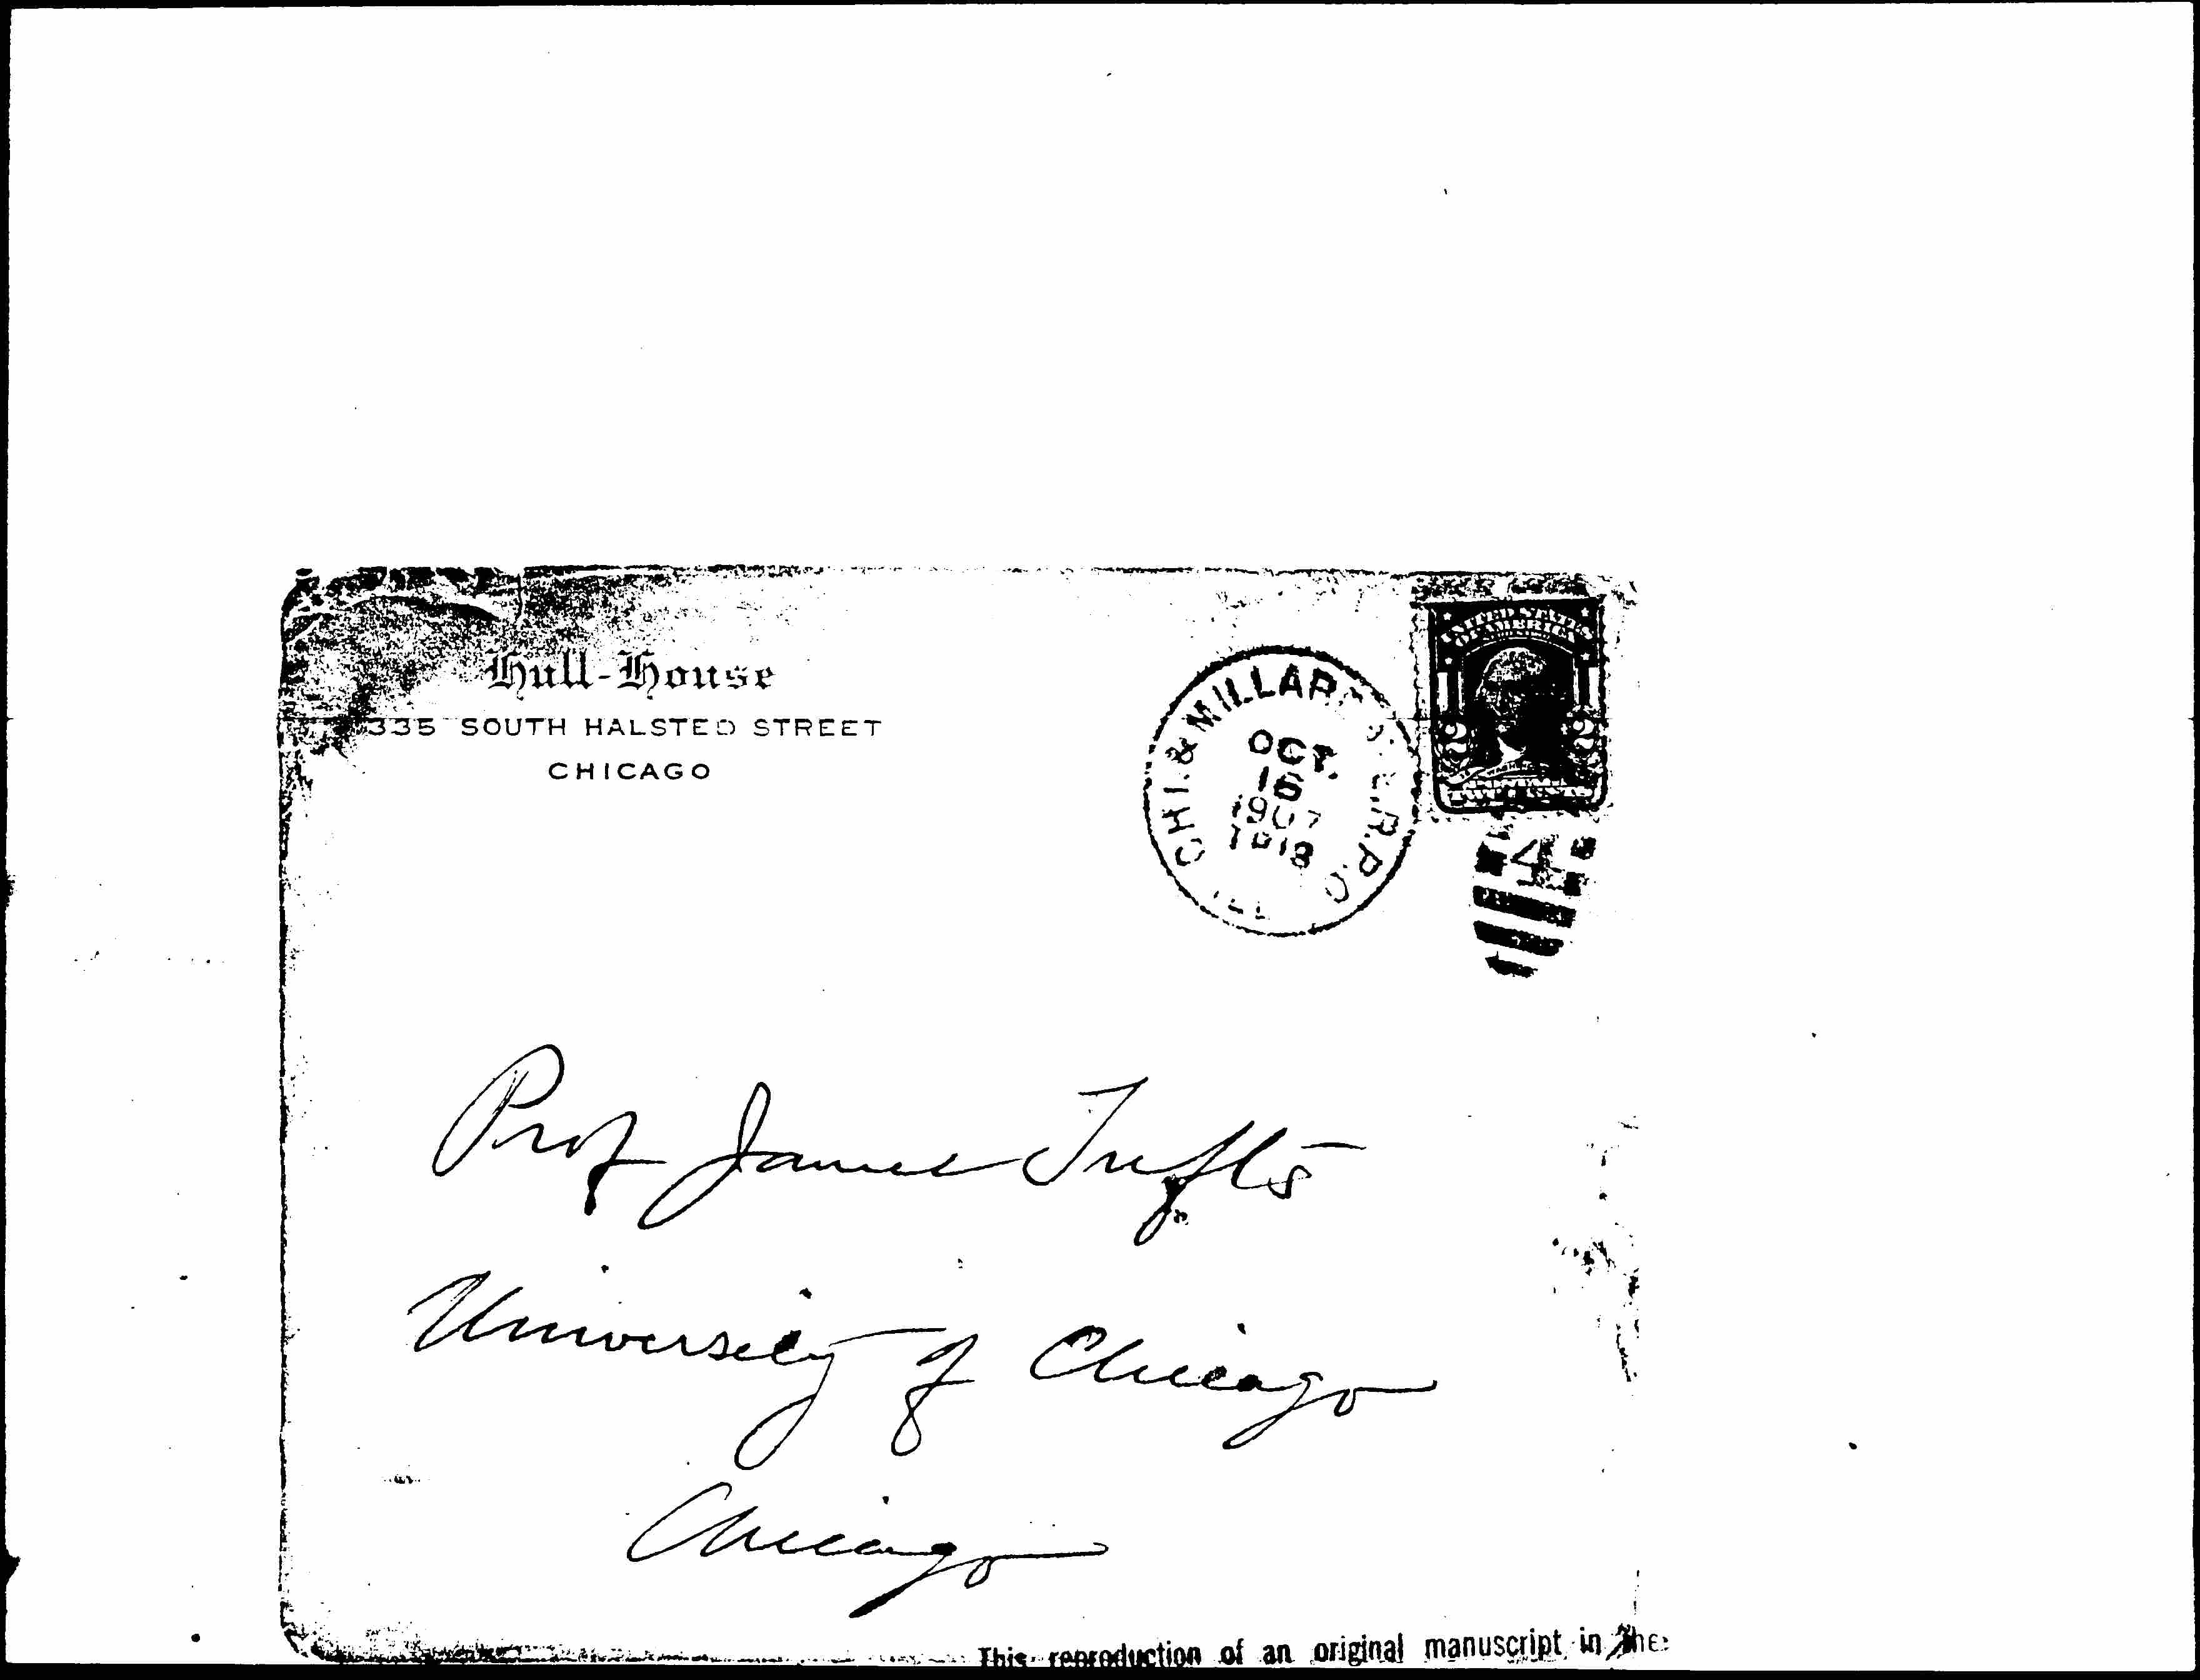 Hull-House
335 SOUTH HALSTED STREET
CHICAGO
CHI. & MILLARD
R.P.O.
OCT.
16
1907
UNITED STATES
OF AMERICA
2 2
4
Prof James Tufts
University of Chicago
Chicago
This reproduction of an original manuscript in the